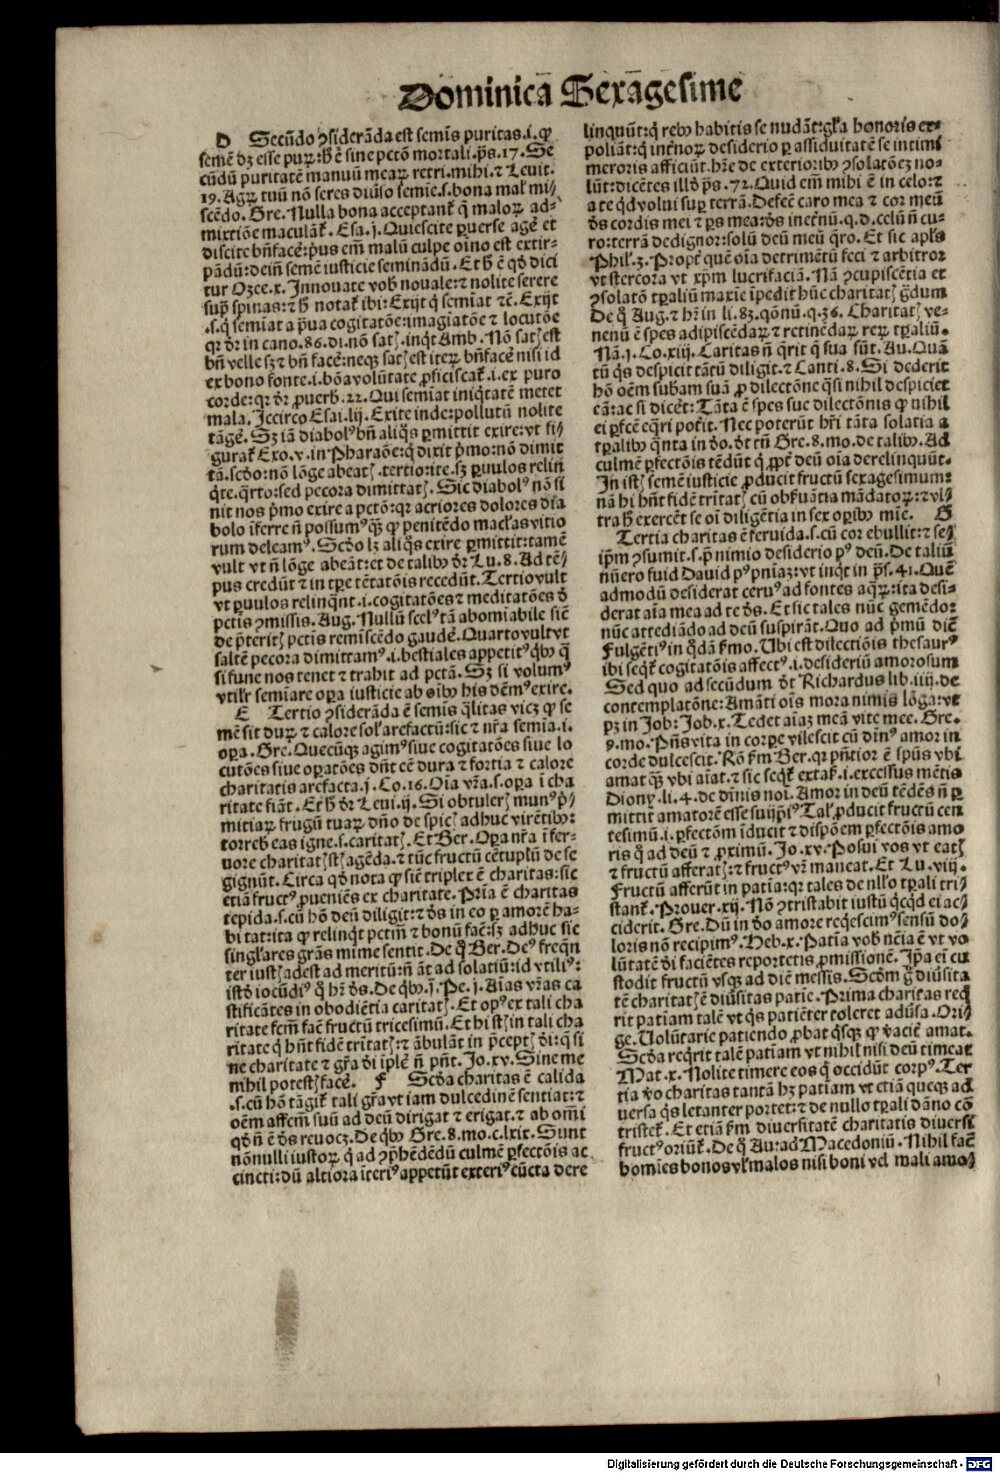 Dominicā Sexāgesime
D Secūdo ꝯsiderāda est semīs puritas.i.ꝙ
semē dꝫ esse puꝝ:hˢ ē sine pctō mortali.ps̄.17.Se
cūdū puritatē manuū meaꝝ retri.mihi.⁊ Leuit.
19.Agꝝ tuū nō seres diuīso semīe.s.bona mal' mi/
scēdo.Gre.Nulla bona acceptant' q̄ maloꝝ ad=
mixtiōe maculāt'.Esa.j.Quiescite ꝑuerse agē et
discite bn̄facē:pͥus em̄ malū culpe oīno est extir=
pādū:deīn semē iusticie seminādū.Et hˢ ē qd' dici
tur Ozee.x.Innouate vob nouale:⁊ nolite serere
suꝑ spinas:⁊ hˢ notat' ibi:Exijt q̇ semīat ⁊c̄.Exijt
.s.q̇ semīat a pͥua cogitatōe:imagīatōe ⁊ locutōe
qꝛ dꝛ in cano.86.di.nō satꝭ.inqͭ Amb.Nō satꝭ est
bn̄ velle sꝫ ⁊ bn̄ facē:neqꝫ satꝭ est iteꝝ bn̄facē nisi id
ex bono fonte.i.bōa volūtate ꝓficiscat'.i.ex puro
corde:qꝛ dꝛ ꝓuerb.22.Qui semīat iniq̇tatē metet
mala.Iccirco Esai.lij.Exite inde:pollutū nolite
tāgē.Sꝫ iā diabolꝰ bn̄ aliq̄s ꝑmittit exire:vt fi/
gurat' Exo.v.in Pharaōe:q̇ dixit pͥmo:nō dimit
tā.scd'o:nō lōge abeatꝭ.tertio:ite.sꝫ ꝑuulos relin
q̇te.q̄rto:sed pecora dimittatꝭ.Sic diabolꝰ nō si
nit nos pͥmo exire a pctō:qꝛ acriores dolores dia
bolo īferre n̄ possumꝰ qꝫ̄ ꝙ penitēdo maclas vitio
rum deleamꝰ.Scd'o lꝫ aliq̄s exire ꝑmittit:tamē
vult vt n̄ lōge abeāt:et de talibꝰ dꝛ Lu.8.Ad tē/
pus credūt ⁊ in tꝑe tētatōis recedūt.Tertio vult
vt ꝑuulos relinq̄nt.i.cogitatōes ⁊ meditatōes d'
pctis ꝯmissis.Aug.Nullū scelꝰ tā abomīabile sic̄
de p̄teritꝭ pctis remīscēdo gaudē.Quarto vult vt
saltē pecora dimittamꝰ.i.bestiales appetitꝰ qͥbꝰ q̄
si fune nos tenet ⁊ trahit ad pctā.Sꝫ si volumꝰ
vtilr̄ semīare oꝑa iusticie ab oībꝰ his dēmꝰ exire.
E Tertio ꝯsiderāda ē semīs q̄litas vicꝫ ꝙ se
mē sit duꝝ ⁊ calore sol' arefactū:sic ⁊ nr̄a semīa.i.
oꝑa.Gre.Quecūqꝫ agimꝰ siue cogitatōes siue lo
cutōes siue oꝑatōes dn̄t eē dura ⁊ fortia ⁊ calore
charitatis arefacta.j.Co.16.Oīa vr̄a.s.oꝑa ī cha
ritate fiāt.Et hˢ dꝛ Leui.ij.Si obtulerꝭ munꝰ pͥ/
mitiaꝝ frugū tuaꝝ dn̄o de spicꝭ adhuc virētibꝰ:
torreb eas igne.s.caritatꝭ.Et Ber.Oꝑa nr̄a ī fer=
uore charitatꝭ st' agēda.⁊ tūc fructū cētuplū de se
gignūt.Circa qd' nota ꝙ sic̄ triplex ē charitas:sic
etiā fructꝰ ꝓueniēs ex charitate.Pͥma ē charitas
tepida.s.cū hō deū diligit:⁊ d's in eo ꝑ amorē ha=
bitat:ita ꝙ relinq̇t pctm̄ ⁊ bonū facē:sꝫ adhuc sic
singl'ares grās mīme sentit.De q° Ber.Deꝰ freq̄n
ter iustꝭ adest ad meritū:n̄ āt ad solatiū:id vtiliꝰ:
istd' iocūdiꝰ q̇ hr̄ d's.De qͥbꝰ.j.Pe.j.Aīas vr̄as ca
stificātes in obodiētia caritatꝭ.Et opꝰ ex tali cha
ritate fcm̄ facē fructū tricesimū.Et hi st' in tali cha
ritate q̇ hn̄t fidē tr̄itatꝭ:⁊ ābulāt in p̄ceptꝭ d'i:q̄ si
ne charitate ⁊ gr̄a d'i īplē n̄ pn̄t.Jo.xv.Sine me
nihil potestꝭ facē. F Scd'a charitas ē calida
.s.cū hō tāgit' tali gr̄a vt iam dulcedinē sentiat:⁊
oēm affcm̄ suū ad deū dirigat ⁊ erigat.⁊ ab omni
qd' n̄ ē d's reuocꝫ.De qͥbꝰ Gre.8.mo.c.lxix.Sunt
nōnulli iustoꝝ q̇ ad ꝯp̄hēdēdū culmē ꝑfectōis ac
cincti:dū altiora īteriꝰ appetūt exteriꝰ cūcta dere
linquūt:q̇ rebꝰ habitis se nudāt:gl'ia honoris ex=
poliāt:q̇ int'noꝝ desiderio ꝑ assiduitatē se intimi
meroris afficiūt.hr̄e de exterioribꝰ ꝯsolatōeꝫ no=
lūt:dicētes illd' ps̄.72.Quid em̄ mihi ē in celo:⁊
a te qd' volui suꝑ terrā.Defec̄ caro mea ⁊ cor meū
d's cordis mei ⁊ ꝑs mea:d's inet'nū.q.d.celū n̄ cu=
ro:terrā dedignor:solū deū meū q̄ro.Et sic apl's
Phil'.3.Propt' quē oīa detrimētū feci ⁊ arbitror
vt stercora vt xp̄m lucrifaciā.Nā ꝯcupiscētia et
ꝯsolatō tꝑaliū maxīe īpedit hūc charitatꝭ gͣdum
De q° Aug.⁊ hr̄ in li.83.q̄onū.q.36.Charitatꝭ ve=
nenū ē spes adipiscēdaꝝ ⁊ retinēdaꝝ reꝝ tꝑaliū.
Nā.j.Co.xiij.Caritas n̄ q̄rit q̄ sua sūt.Au.Quā
tū q̇s despicit tātū diligit.⁊ Canti.8.Si dederit
hō oēm subam suā ꝓ dilectōne q̄si nihil despiciet
eā:ac si dicēt:Tāta ē spes sue dilectōnis ꝙ nihil
ei ꝑfcē eq̄ri pot'it.Nec poterūt hr̄i tāta solatia a
tꝑalibꝰ q̄nta in d'o.d't tn̄ Gre.8.mo.de talibꝰ.Ad
culmē ꝑfectōis tēdūt q̇ ꝓpt' deū oīa derelinquūt.
In istꝭ semē iusticie ꝓducit fructū sexagesimum:
nā hi hn̄t fidē tr̄itatꝭ cū obs'uātia mādatoꝝ:⁊ vl/
tra hˢ exercēt se oī diligētia in sex oꝑibꝰ mīe. G
Tertia charitas ē feruida.s.cū cor ebullit:⁊ se/
ip̄m ꝯsumit.s.p̄ nimio desiderio pꝰ deū.De taliū
nūero fuid Dauid pꝰ pn̄iaꝫ:vt inqͭ in ps̄.41.Quē
admodū desiderat ceruꝰ ad fontes aqͣꝝ:ita desi=
derat aīa mea ad te d's.Et sic tales nūc gemēdo:
nūc attediādo ad deū suspirāt.Quo ad pͥmū dic̄
Fulgētiꝰ in qͣdā s'mo.Ubi est dilectiōis thesaurꝰ
ibi seqͭ' cogitatōis affectꝰ.i.desideriū amorosum
Sed quo ad secūdum d't Richardus lib.iiij.de
contemplatōne:Amāti oīs mora nimis lōga:vt
pꝫ in Job:Job.x.Tedet aīaꝫ meā vite mee.Gre.
9.mo.Pn̄s vita in corꝑe vilescit cū diuīnꝰ amor in
corde dulcescit.Rō s'm Ber.qꝛ pn̄tior ē spūs vbi
amat qꝫ̄ vbi aīat.⁊ sic seqͭ' extas'.i.excessus mētis
Diony.li.4.de diuīnis noī.Amor in deū tēdēs n̄ ꝑ
mittit amatorē esse suiip̄iꝰ.Tal' ꝓducit fructū cen
tesimū.i.ꝑfectōm īducit ⁊ dispōem ꝑfectōis amo
ris q° ad deū ⁊ ꝓximū.Jo.xv.Posui vos vt eatꝭ
⁊ fructū afferatꝭ:⁊ fructꝰ vr̄ maneat.Et Lu.viij.
Fructū afferūt in patīa:qꝛ tales de nll'o tꝑali tri/
stant'.Prouer.xij.Nō ꝯtristabit iustū q̇cq̇d ei ac/
ciderit.Gre.Dū in d'o amore reqͥescimꝰ sensū do/
loris nō recipimꝰ.Heb.x.Patīa vob nēia ē vt vo
lūtatē d'i faciētes reportetis ꝓmissionē.Ip̄a ei cu
stodit fructū vsqꝫ ad diē messis.Scdm̄ gͦ diu'sita
tē charitatꝭ ē diu'sitas patīe.Prima charitas req̇
rit patīam talē vt q̇s patiēter toleret adu'sa.Ori/
ge.Volūtarie patiendo ꝓbat q̇sqꝫ ꝙ v'acit' amat.
Scd'a req̇rit talē patīam vt nihil nisi deū timeat
Mat.x.Nolite timere eos q̇ occidūt corpꝰ.Ter
tia v'o charitas tantā hꝫ patīam vt etiā queqꝫ ad
uersa q̇s letanter portet:⁊ de nullo tꝑali dāno cō
tristet'.Et etiā s'm diuersitatē charitatis diuersi
fructꝰ oriūt'.De q° Au:ad Macedoniū.Nihil facē
homies bonos vl' malos nisi boni vel mali amo/
Digitalisierung gefördert durch die Deutsche Forschungsgemeinschaft - DFG